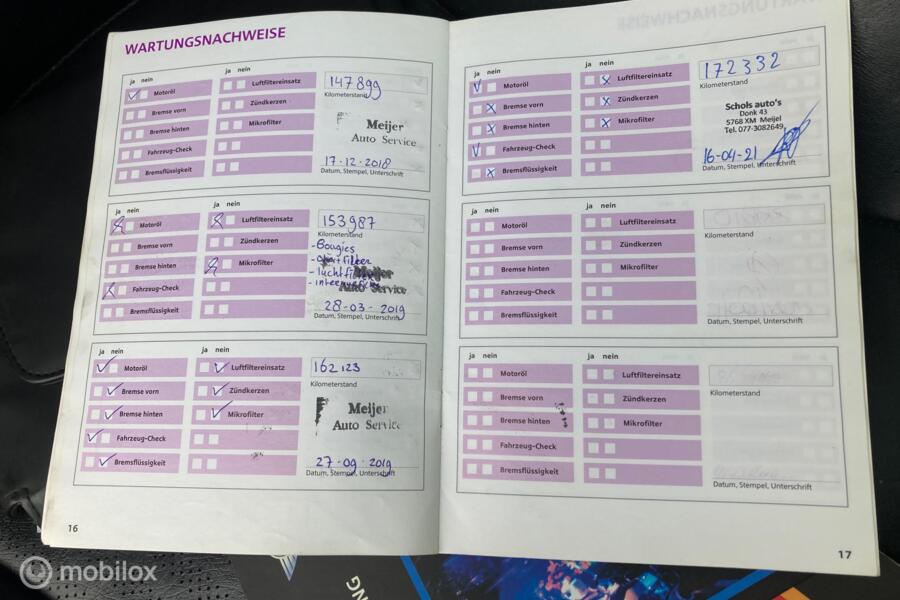 WARTUNGSNACHWEISE
ja nein
Motoröl
Bremse vorn
Bremse hinten
Fahrzeug-Check
Bremsflüssigkeit
ja nein
Luftfiltereinsatz
Zündkerzen
Mikrofilter
147899
Kilometerstand
Meijer
Auto Service
17-12-2018
Datum, Stempel, Unterschrift
ja nein
Motoröl
Bremse vorn
Bremse hinten
Fahrzeug-Check
Bremsflüssigkeit
ja nein
Luftfiltereinsatz
Zündkerzen
Mikrofilter
153987
Kilometerstand
- Bougies
Meijer
Auto Service
28-03-2019
Datum, Stempel, Unterschrift
ja nein
Motoröl
Bremse vorn
Bremse hinten
Fahrzeug-Check
Bremsflüssigkeit
ja nein
Luftfiltereinsatz
Zündkerzen
Mikrofilter
162123
Kilometerstand
Meijer
Auto Service
27-09-2019
Datum, Stempel, Unterschrift
16
ja nein
Motoröl
Bremse vorn
Bremse hinten
Fahrzeug-Check
Bremsflüssigkeit
ja nein
Luftfiltereinsatz
Zündkerzen
Mikrofilter
172332
Kilometerstand
Schols auto's
Donk 43
5768 XM Meijel
Tel. 077-3082649
16-04-21
Datum, Stempel, Unterschrift
ja nein
Motoröl
Bremse vorn
Bremse hinten
Fahrzeug-Check
Bremsflüssigkeit
ja nein
Luftfiltereinsatz
Zündkerzen
Mikrofilter
Kilometerstand
Datum, Stempel, Unterschrift
ja nein
Motoröl
Bremse vorn
Bremse hinten
Fahrzeug-Check
Bremsflüssigkeit
ja nein
Luftfiltereinsatz
Zündkerzen
Mikrofilter
Kilometerstand
Datum, Stempel, Unterschrift
17
mobilox